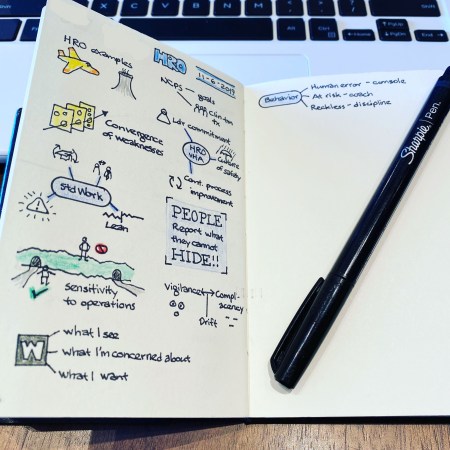 HRO examples
HRO
11-6-2019
NCPS
goals
tx
Convergence
of weaknesses
Ldr commitment
HRO
VHA
Culture
of safety
Cont. process
improvement
Std Work
Lean
PEOPLE
Report what
they cannot
HIDE!!
sensitivity
to operations
Vigilance
Compl-
acency
Drift
W
what I see
what I'm concerned about
what I want
Behavior
Human error - console
At risk - coach
Reckless - discipline
Sharpie Pen.
option
command